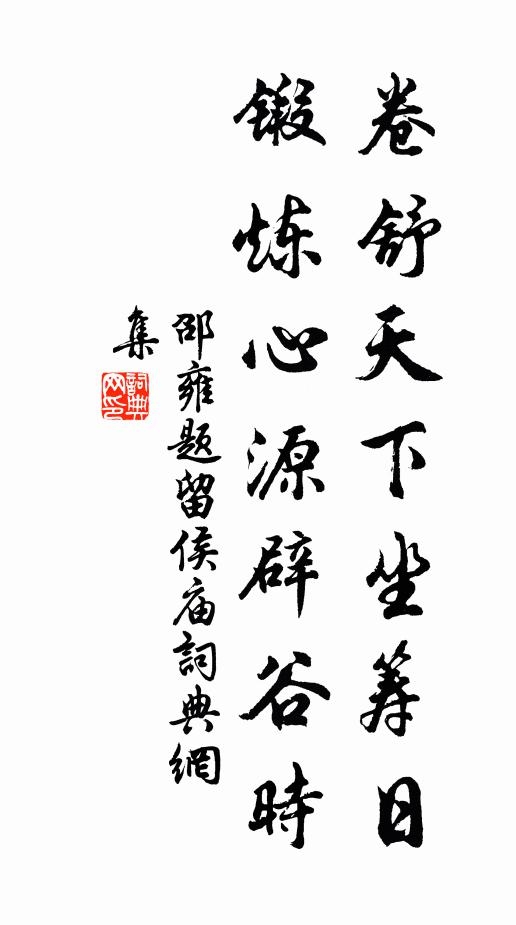 卷舒天下坐筹日
锻炼心源辟谷時
邵雍题留侯庙詞典網
集
詞典
网印